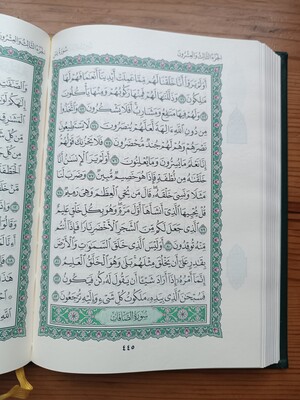 الجزء الثالث والعشرون
أَوَلَمْ يَرَوْا أَنَّا خَلَقْنَا لَهُم مِّمَّا عَمِلَتْ أَيْدِينَا أَنْعَٰمًا فَهُمْ لَهَا
مَٰلِكُونَ ٧١ وَذَلَّلْنَٰهَا لَهُمْ فَمِنْهَا رَكُوبُهُمْ وَمِنْهَا يَأْكُلُونَ
٧٢ وَلَهُمْ فِيهَا مَنَٰفِعُ وَمَشَارِبُ أَفَلَا يَشْكُرُونَ ٧٣ وَاتَّخَذُوا
مِن دُونِ اللَّهِ ءَالِهَةً لَّعَلَّهُمْ يُنصَرُونَ ٧٤ لَا يَسْتَطِيعُونَ
نَصْرَهُمْ وَهُمْ لَهُمْ جُندٌ مُّحْضَرُونَ ٧٥ فَلَا يَحْزُنكَ قَوْلُهُمْ
إِنَّا نَعْلَمُ مَا يُسِرُّونَ وَمَا يُعْلِنُونَ ٧٦ أَوَلَمْ يَرَ الْإِنسَٰنُ أَنَّا
خَلَقْنَٰهُ مِن نُّطْفَةٍ فَإِذَا هُوَ خَصِيمٌ مُّبِينٌ ٧٧ وَضَرَبَ لَنَا
مَثَلًا وَنَسِيَ خَلْقَهُ قَالَ مَن يُحْيِ الْعِظَٰمَ وَهِيَ رَمِيمٌ ٧٨
قُلْ يُحْيِيهَا الَّذِي أَنشَأَهَا أَوَّلَ مَرَّةٍ وَهُوَ بِكُلِّ خَلْقٍ عَلِيمٌ
٧٩ الَّذِي جَعَلَ لَكُم مِّنَ الشَّجَرِ الْأَخْضَرِ نَارًا فَإِذَا أَنتُم
مِّنْهُ تُوقِدُونَ ٨٠ أَوَلَيْسَ الَّذِي خَلَقَ السَّمَٰوَٰتِ وَالْأَرْضَ
بِقَٰدِرٍ عَلَىٰ أَن يَخْلُقَ مِثْلَهُم بَلَىٰ وَهُوَ الْخَلَّٰقُ الْعَلِيمُ ٨١
إِنَّمَا أَمْرُهُ إِذَا أَرَادَ شَيْئًا أَن يَقُولَ لَهُ كُن فَيَكُونُ ٨٢
فَسُبْحَٰنَ الَّذِي بِيَدِهِ مَلَكُوتُ كُلِّ شَيْءٍ وَإِلَيْهِ تُرْجَعُونَ ٨٣
سُورَةُ الصَّافَّاتِ
٤٤٥